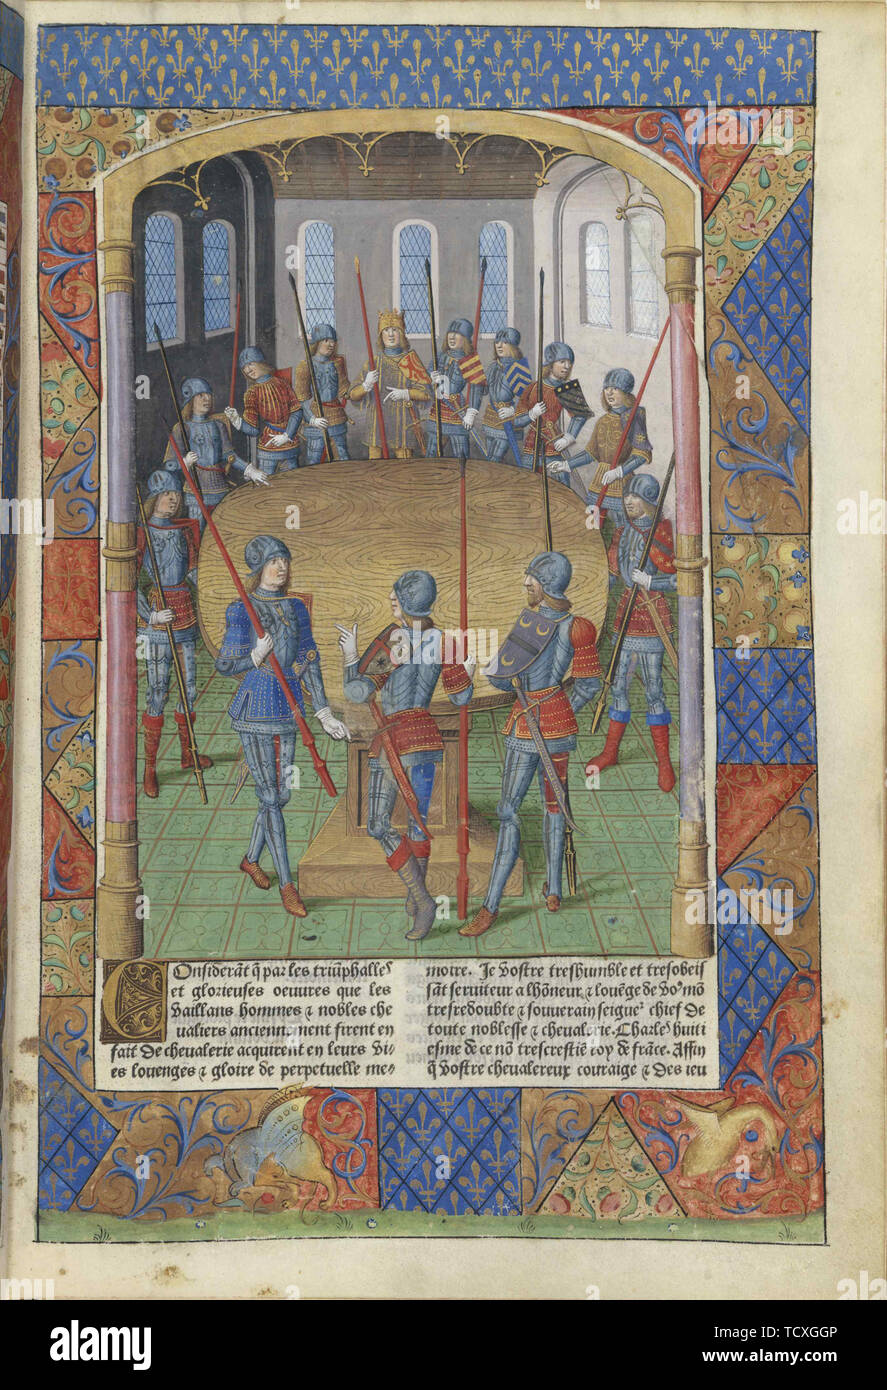 Considerāt q̄ par les triūphalles
et glorieuses oeuures que les
Vaillans hommes & nobles che
ualiers anciennement firent en
fait de cheualerie acquirent en leurs vi-
es louenges & gloire de perpetuelle me-
moire. Je vostre treshumble et tresobeis
sāt seruiteur a lhōneur & louēge de
tresredoubte & souuerain seigneʳ chief de
toute noblesse & cheualerie. Charleˢ huiti
esme de ce nō trescrestiē roy de frāce. Affin
q̄ vostre cheualereux couraige & des ieu
alamy stock photo
a
alamy
Image ID: TCXGGP
www.alamy.com